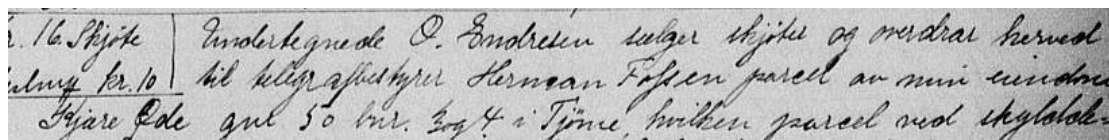 16. Skjøte Undertegnede O. Endresen sælger skjøter og overdrar herved
kr. 10 til telegrafbestyrer Herman Fossen parcel av min eiendom
Kjære Øde gnr. 50 bnr. 3 og 4 i Tjöme, hvilken parcel ved skylddele-